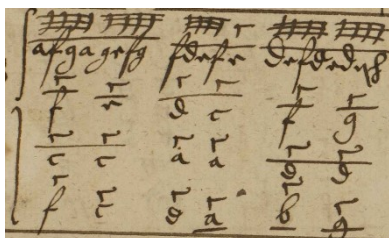 afga gefg fdefe defdedch
f e d c f g
c c a a d d
f c d a b g